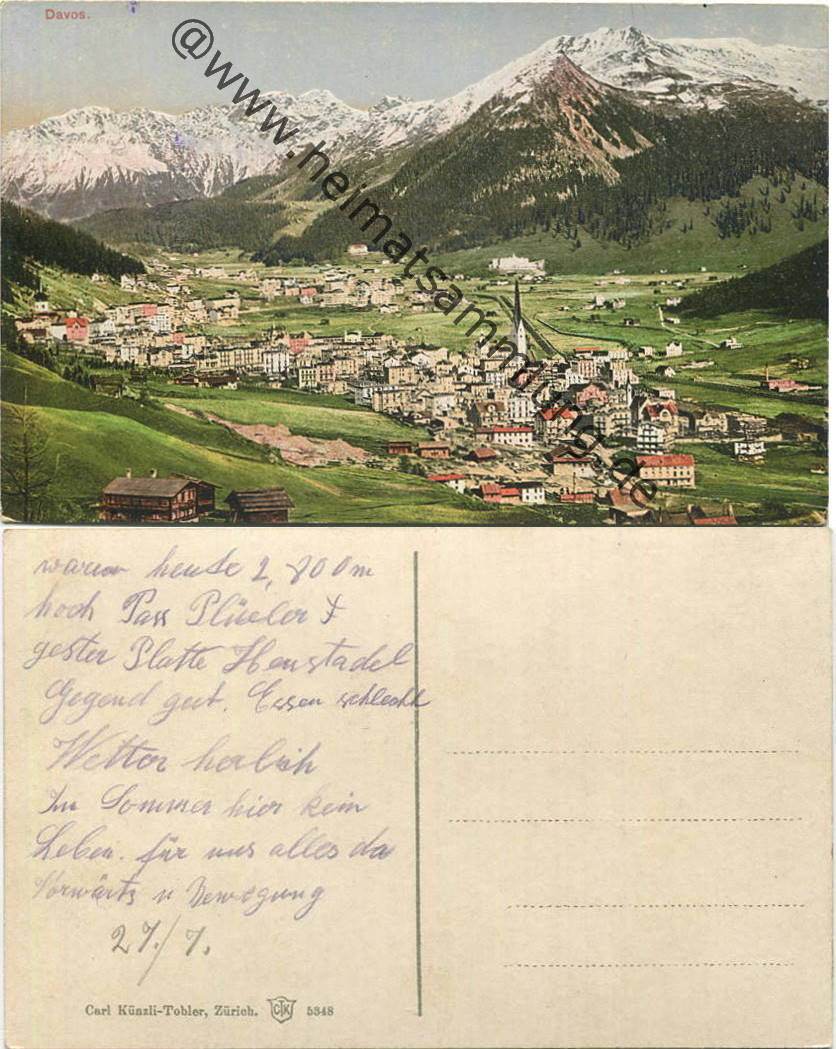 Davos.
@www.heimatsammlung.de
waren heute 2,800m
hoch Pass Flüeler &
gester Platte
Gegend gut. Essen schlecht
Wetter herlich
Im Sommer hier kein
Leben. für uns alles da
Vorwärts u Bewegung
27./7.
Carl Künzli-Tobler, Zürich. CTK 5348